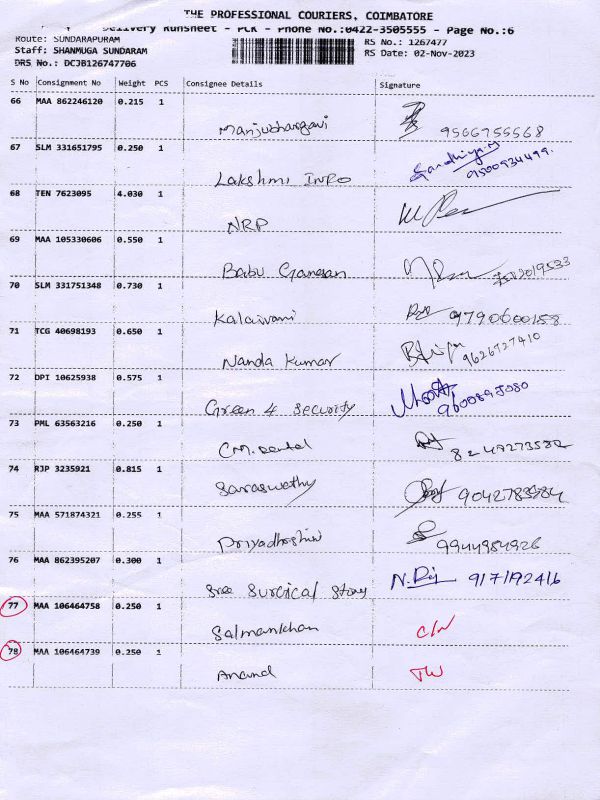 THE PROFESSIONAL COURIERS, COIMBATORE
Delivery Runsheet - PCR - Phone No.:0422-3505555 - Page No.:6
Route: SUNDARAPURAM RS No.: 1267477
Staff: SHANMUGA SUNDARAM RS Date: 02-Nov-2023
DRS No.: DCJB126747706
S No Consignment No Weight PCS Consignee Details Signature
66 MAA 862246120 0.215 1
Manjubhargavi 9566755568
67 SLM 331651795 0.250 1
Lakshmi INFO 9500934499
68 TEN 7623095 4.030 1
NRP
69 MAA 105330606 0.550 1
Babu Ganesan
70 SLM 331751348 0.730 1
Kalaivani 9790600158
71 TCG 40698193 0.650 1
Nanda Kumar 9626727410
72 DPI 10625938 0.575 1
Green 4 Security 9600895080
73 PML 63563216 0.250 1
CM. dental 8247273582
74 RJP 3235921 0.815 1
Saraswathy 9042783984
75 MAA 571874321 0.255 1
Priyadharshini 9944954926
76 MAA 862395207 0.300 1
Sree Surgical Stores 917192416
77 MAA 106464758 0.250 1
Salmankhan
78 MAA 106464739 0.250 1
Anand